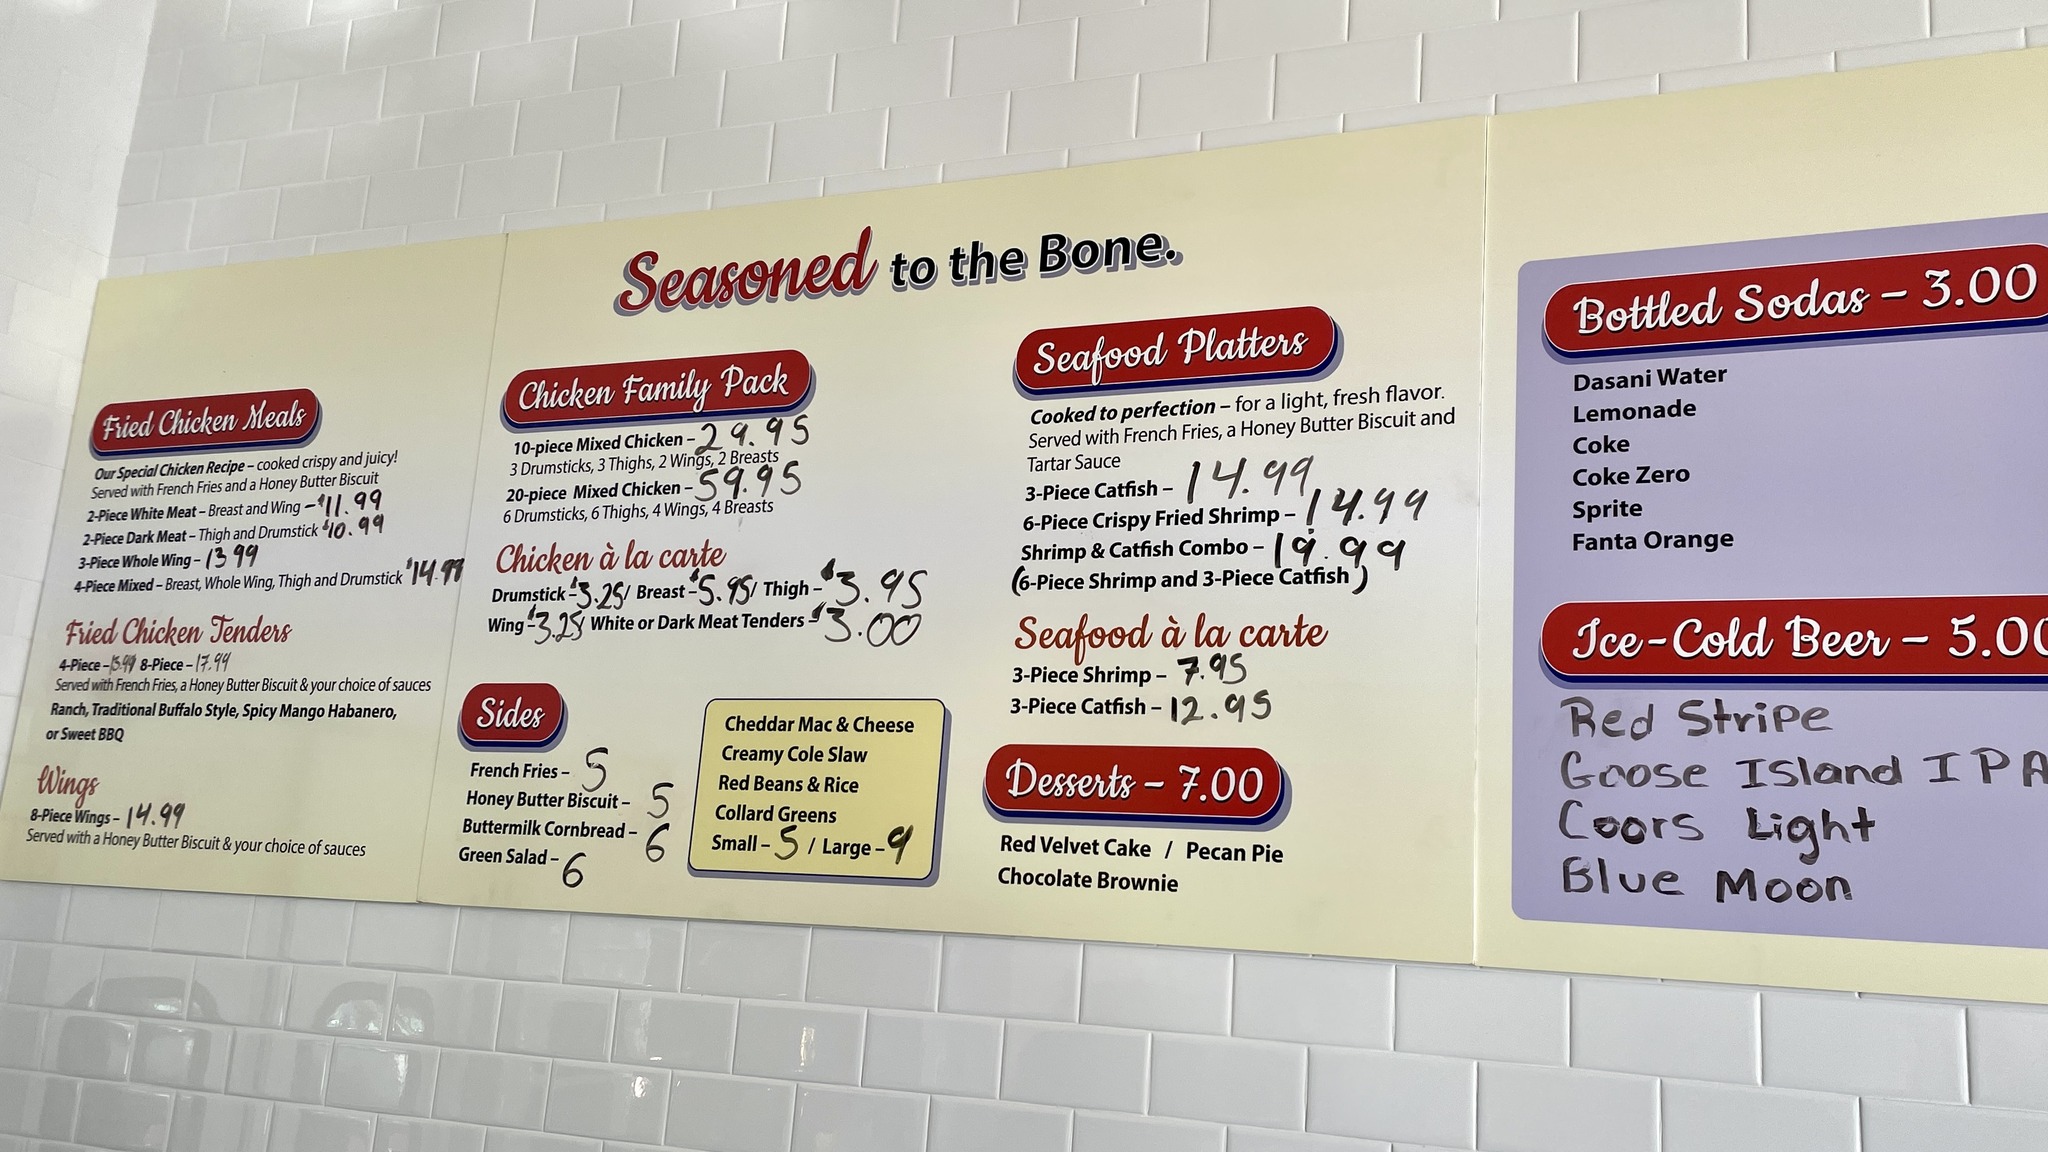 Seasoned to the Bone.
Fried Chicken Meals
Our Special Chicken Recipe – cooked crispy and juicy!
Served with French Fries and a Honey Butter Biscuit
2-Piece White Meat – Breast and Wing – $11.99
2-Piece Dark Meat – Thigh and Drumstick $10.99
3-Piece Whole Wing – 13 99
4-Piece Mixed – Breast, Whole Wing, Thigh and Drumstick $14.99
Fried Chicken Tenders
4-Piece – 13.99 8-Piece – 17.99
Served with French Fries, a Honey Butter Biscuit & your choice of sauces
Ranch, Traditional Buffalo Style, Spicy Mango Habanero,
or Sweet BBQ
Wings
8-Piece Wings – 14.99
Served with a Honey Butter Biscuit & your choice of sauces
Chicken Family Pack
10-piece Mixed Chicken – 29.95
3 Drumsticks, 3 Thighs, 2 Wings, 2 Breasts
20-piece Mixed Chicken – 59.95
6 Drumsticks, 6 Thighs, 4 Wings, 4 Breasts
Chicken à la carte
Drumstick – $3.25 / Breast – $5.95 / Thigh – $3.95
Wing – $3.25 / White or Dark Meat Tenders – $3.00
Sides
French Fries – 5
Honey Butter Biscuit – 5
Buttermilk Cornbread – 6
Green Salad – 6
Cheddar Mac & Cheese
Creamy Cole Slaw
Red Beans & Rice
Collard Greens
Small – 5 / Large – 9
Seafood Platters
Cooked to perfection – for a light, fresh flavor.
Served with French Fries, a Honey Butter Biscuit and
Tartar Sauce
3-Piece Catfish – 14.99
6-Piece Crispy Fried Shrimp – 14.99
Shrimp & Catfish Combo – 19.99
(6-Piece Shrimp and 3-Piece Catfish)
Seafood à la carte
3-Piece Shrimp – 7.95
3-Piece Catfish – 12.95
Desserts – 7.00
Red Velvet Cake / Pecan Pie
Chocolate Brownie
Bottled Sodas – 3.00
Dasani Water
Lemonade
Coke
Coke Zero
Sprite
Fanta Orange
Ice-Cold Beer – 5.00
Red Stripe
Goose Island IPA
Coors Light
Blue Moon